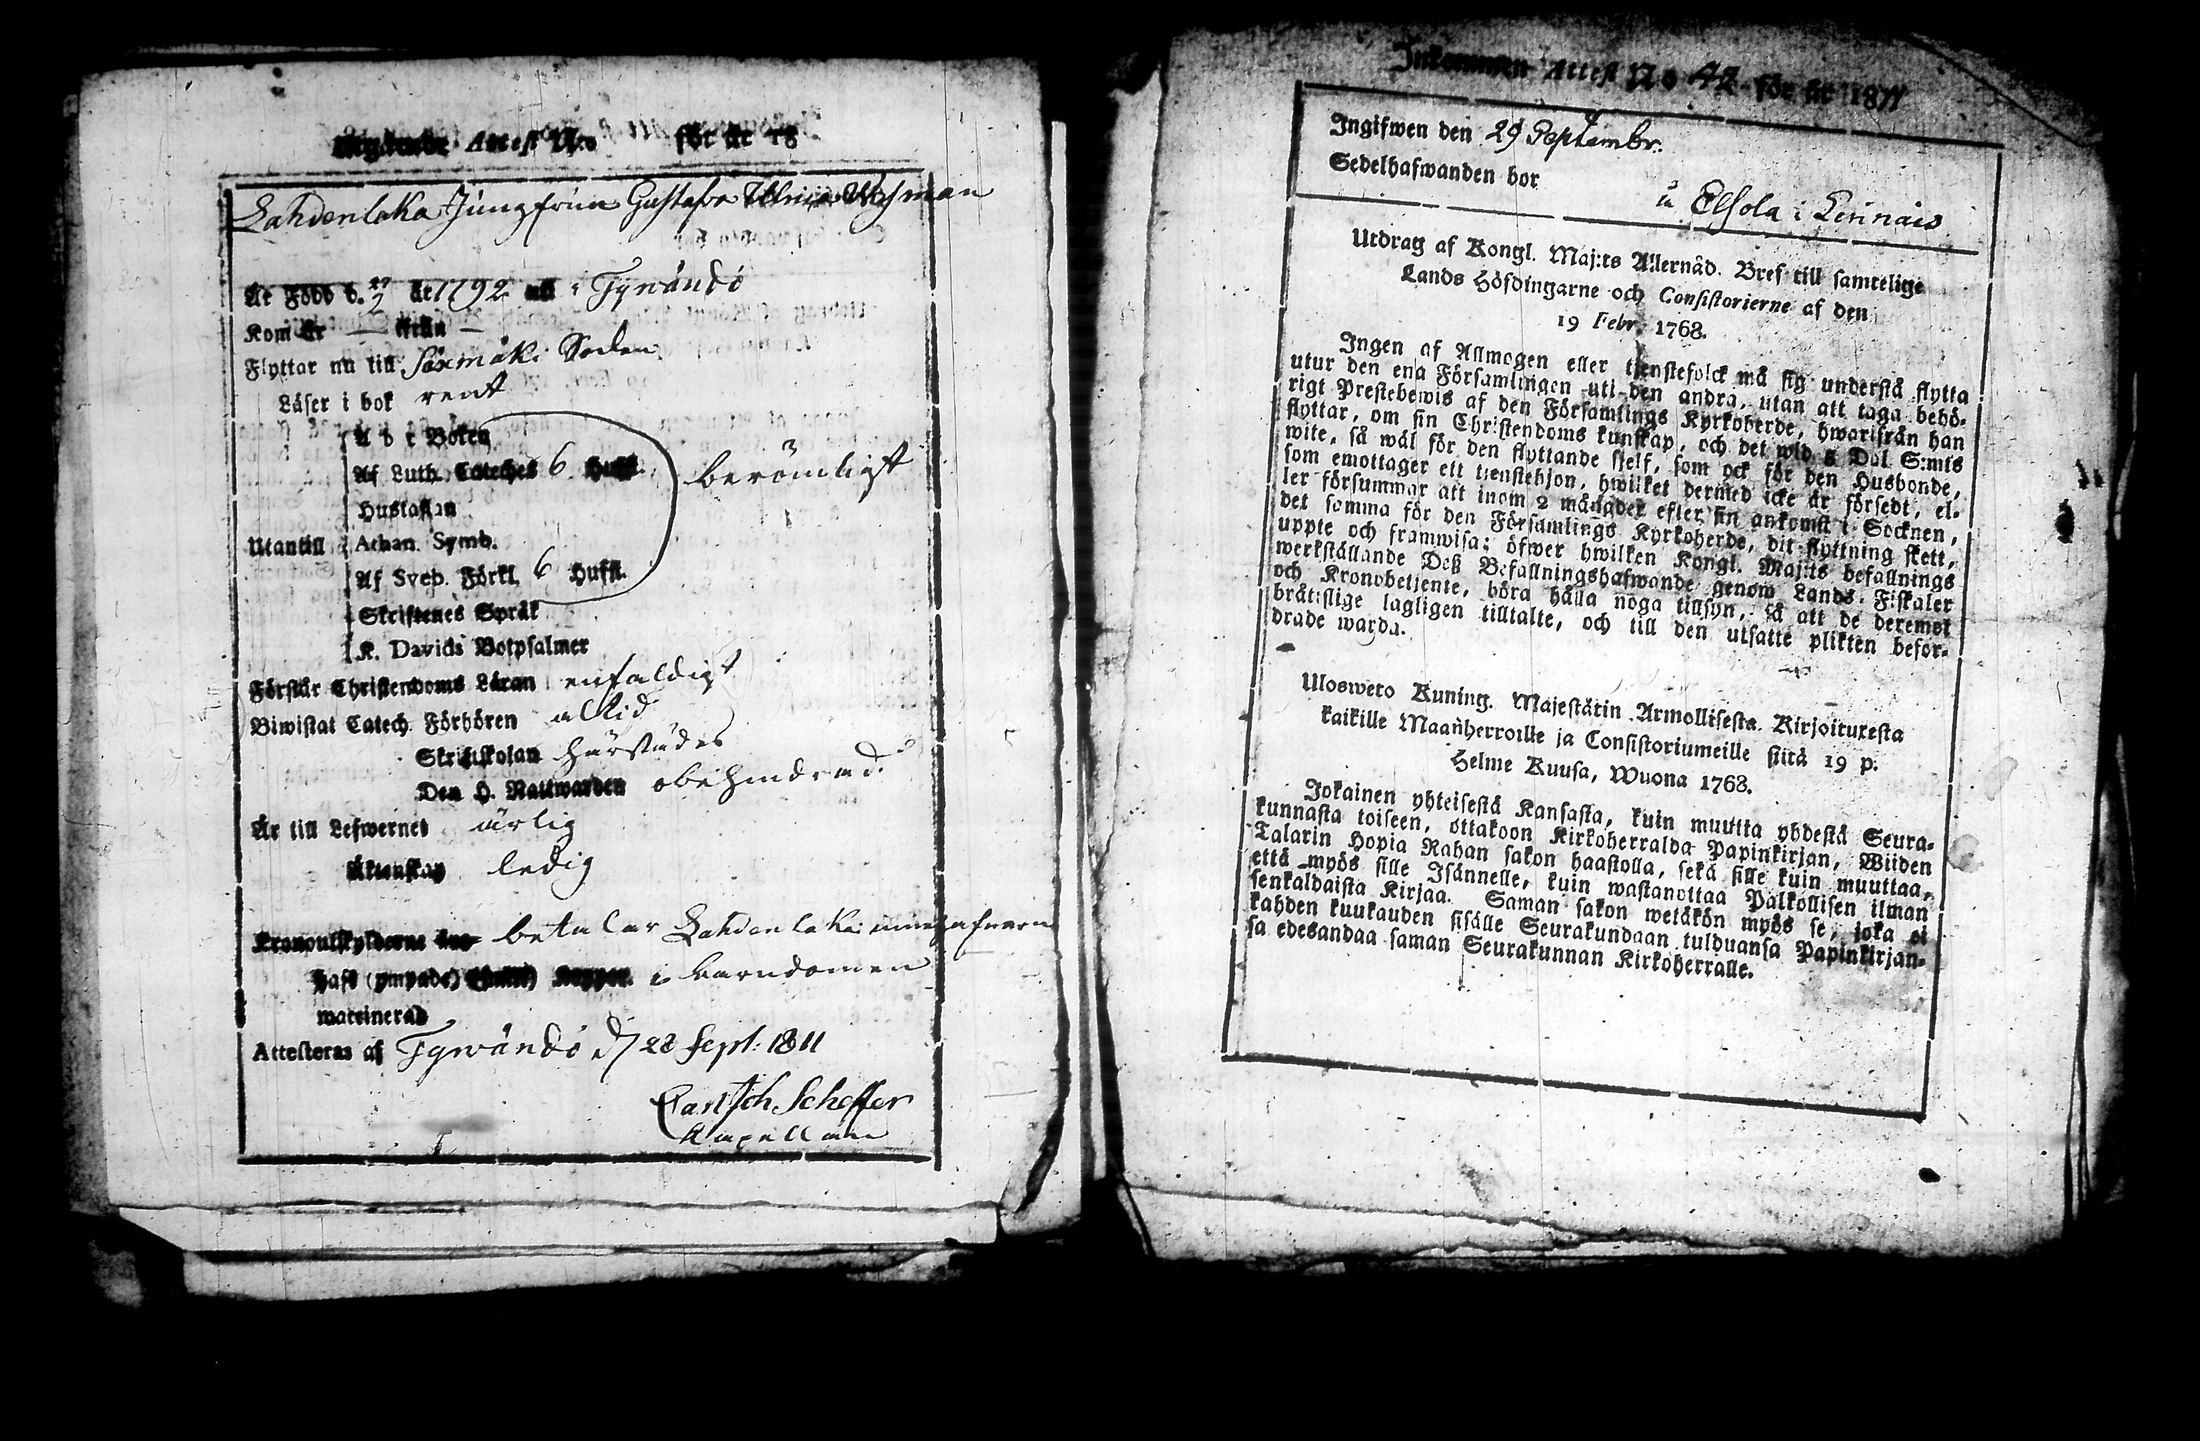 Utgående Attest N:o för år 18
Lahdenlaka Jungfrun Gustafva Ulrica Wijman
Är Född d. 27/2 år 1792 i Tyrwändö
Kom år — ifrån —
Flyttar nu till Säxmäki Socken
Läser i bok rent
A b c Boken
Af Luth. Cateches 6 Hufst. berömligt
Hustaflan
Utantill Athan. Symb.
Af Sveb. Förkl. 6 Hufst.
Skriftenes Språk
K. Davids Botpsalmer
Förstår Christendoms Läran enfaldigt
Biwistat Catech. Förhören altid
Skriftskolan härstädes
Den H. Nattwarden obehindrad.
Är till Lefwernet ärlig
Äktenskap ledig
Kronoutskylderne betalar Lahdenlaka innehafvare
Haft (ympade) Koppor i barndomen
waccinerad
Attesteras af Tyrwändö d 28 Sept: 1811
Carl Joh Scheffer
Kapellan
Inkommen Attest No 42 för år 1811
Ingifwen den 29 Septembr.
Sedelhafwanden bor
å Elsola i Lennais
Utdrag af Kongl. Maj:ts Allernåd. Bref till samtelige
Lands Höfdingarne och Consistorierne af den
19 Febr. 1768.
Ingen af Allmogen eller tjenstefolck må sig understå flytta
utur den ena Församlingen uti den andra, utan att taga behö-
rigt Prestebewis af den Församlings Kyrkoherde, hwarifrån han
flyttar, om sin Christendoms kunskap, och det wid 5 Dal. S:mts
wite, så wäl för den flyttande sjelf, som ock för den Husbonde,
som emottager ett tjenstehjon, hwilket dermed icke är försedt, el-
ler försummar att inom 2 månader efter sin ankomst i Socknen,
det samma för den Församlings Kyrkoherde, dit flyttning skett,
uppte och framwisa; öfwer hwilken Kongl. Maj:ts befallnings
werkställande Deß Befallningshafwande genom Lands-Fiskaler
och Kronobetjente, böra hålla noga tillsyn, så att de deremot
bråtslige lagligen tilltalte, och till den utsatte plikten befor-
drade warda.
Uloswero Kuning. Majestätin Armollisesta Kirjoituxesta
kaikille Maanherroille ja Consistoriumeille siitä 19 p.
Helme Kuusa, Wuona 1768.
Jokainen yhteisestä Kansasta, kuin muutta yhdestä Seura-
kunnasta toiseen, ottakoon Kirkoherralda Papinkirjan, Wiiden
Talarin Hopia Rahan sakon haastolla, sekä sille kuin muuttaa,
että myös sille Isännelle, kuin wastanottaa Palkollisen ilman
senkaldaista Kirjaa. Saman sakon wetäkön myös se, joka ei
kahden kuukauden sisälle Seurakundaan tulduansa Papinkirjan-
sa edesandaa saman Seurakunnan Kirkoherralle.